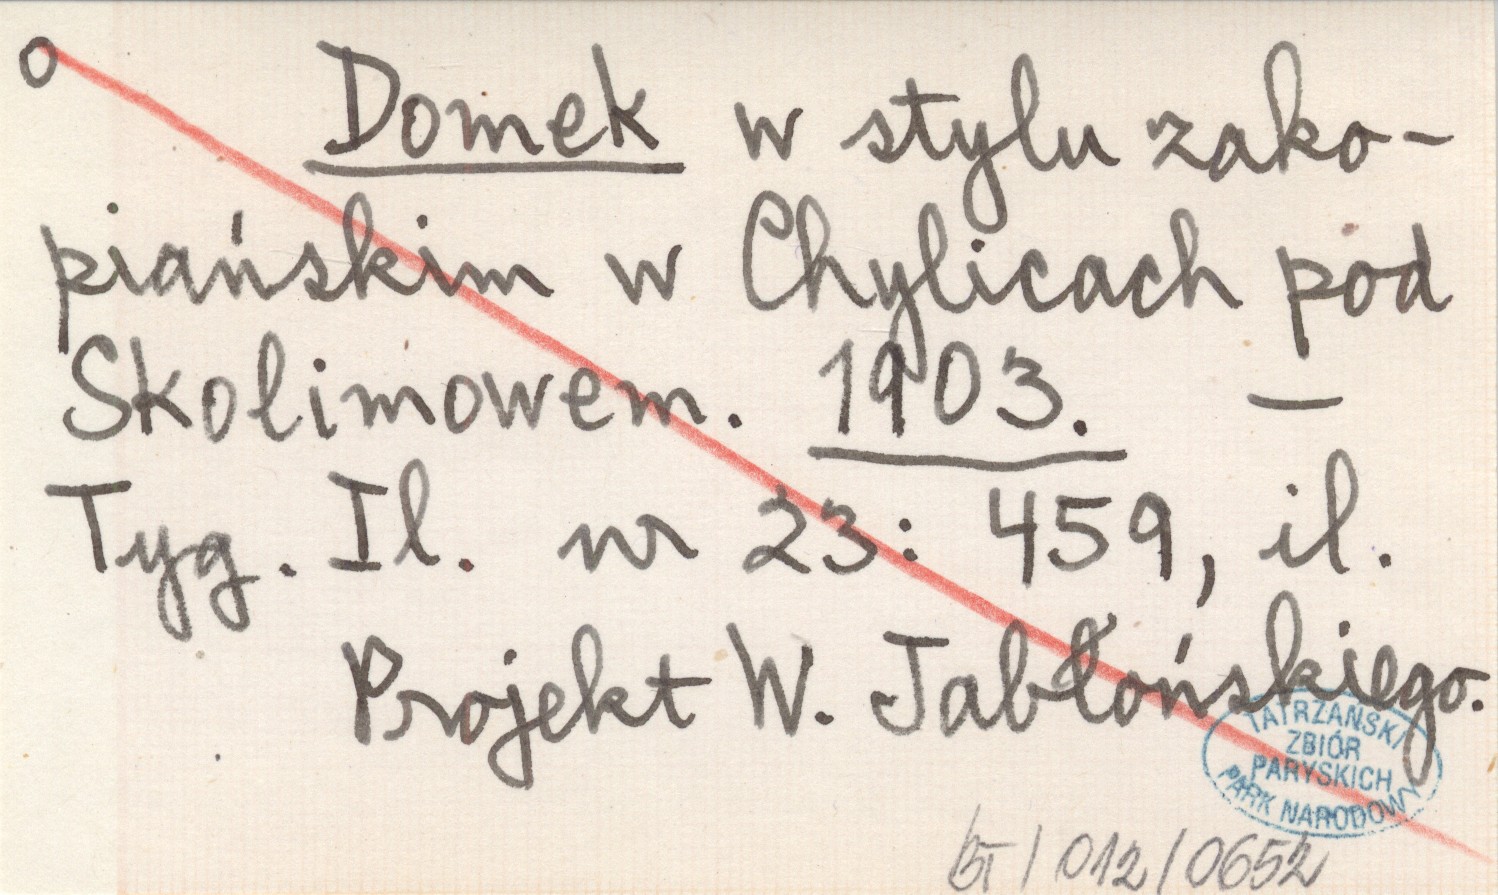 o Domek w stylu zako-
piańskim w Chylicach pod
Skolimowem. 1903. —
Tyg. Il. nr 23: 459, il.
Projekt W. Jabłońskiego.
TATRZAŃSKI
ZBIÓR
PARYSKICH
PARK NARODOWY
BT/012/0652